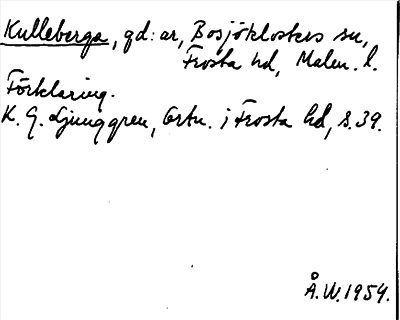 Kulleberga, gd:ar, Bosjöklosters sn,
Frosta hd, Malm. l.
Förklaring.
K. G. Ljunggren, Ortn. i Frosta hd, s.39.
Å.W.1954.